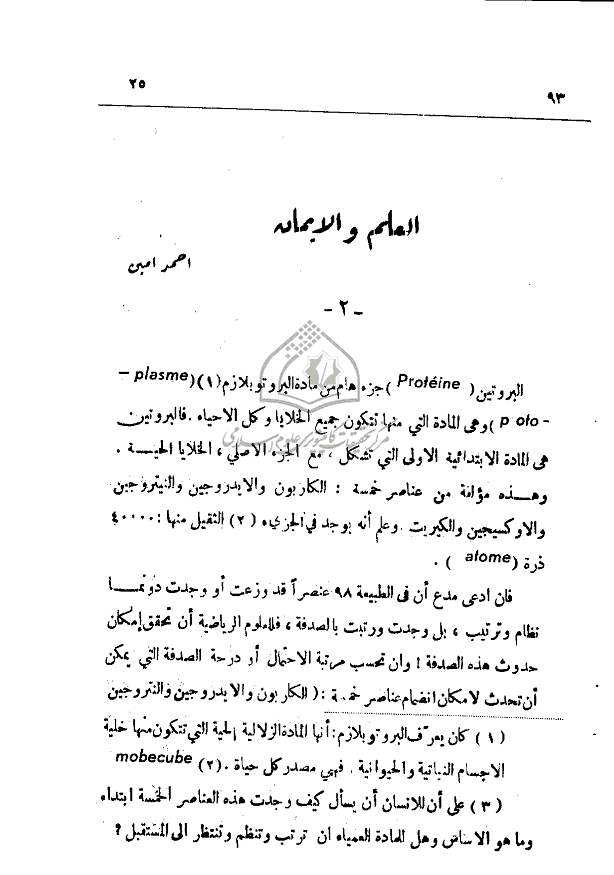 ٢٥
٩٣
العلم والايمان
احمد امين
- ٢ -
البروتين (Protéine) جزء هام من مادة البروتوبلازم (١) (plasme –
p oto-) وهى المادة التي منها تتكون جميع الخلايا وكل الاحياء . فالبروتين
هى المادة الابتدائية الاولى التي تشكل ، مع الجزء الاصلي ، الخلايا الحيــة .
وهــذه مؤلفة من عناصر خمسة : الكاربون والايدروجين والنيتروجين
والاوكسيجين والكبريت . وعلم أنه يوجد في الجزيء (٢) الثقيل منها : ٤٠٠٠٠
ذرة (atome) .
فان ادعى مدع أن فى الطبيعة ٩٨ عنصراً قد وزعت أو وجدت دونمــا
نظام وترتيب ، بل وجدت ورتبت بالصدفة ، فللعلوم الرياضية أن تحقق إمكان
حدوث هذه الصدفة ! وان تحسب مرتبة الاحتمال أو درحة الصدفة التي يمكن
أن تحدث لامكان انضمام عناصر خمسة : (الكاربون والايدروجين والنتروجين
(١) كان يعرّف البروتوبلازم : أنها المادة الزلالية الحية التي تتكون منها خلية
الاجسام النباتية والحيوانية . فهي مصدر كل حياة . (٢) mobecube
(٣) على أن للانسان أن يسأل كيف وجدت هذه العناصر الخمسة ابتداء
وما هو الاساس وهل للمادة العمياء ان ترتب وتنظم وتنتظر الى المستقبل ؟
مركز تحقيقات كامپيوتری علوم اسلامی